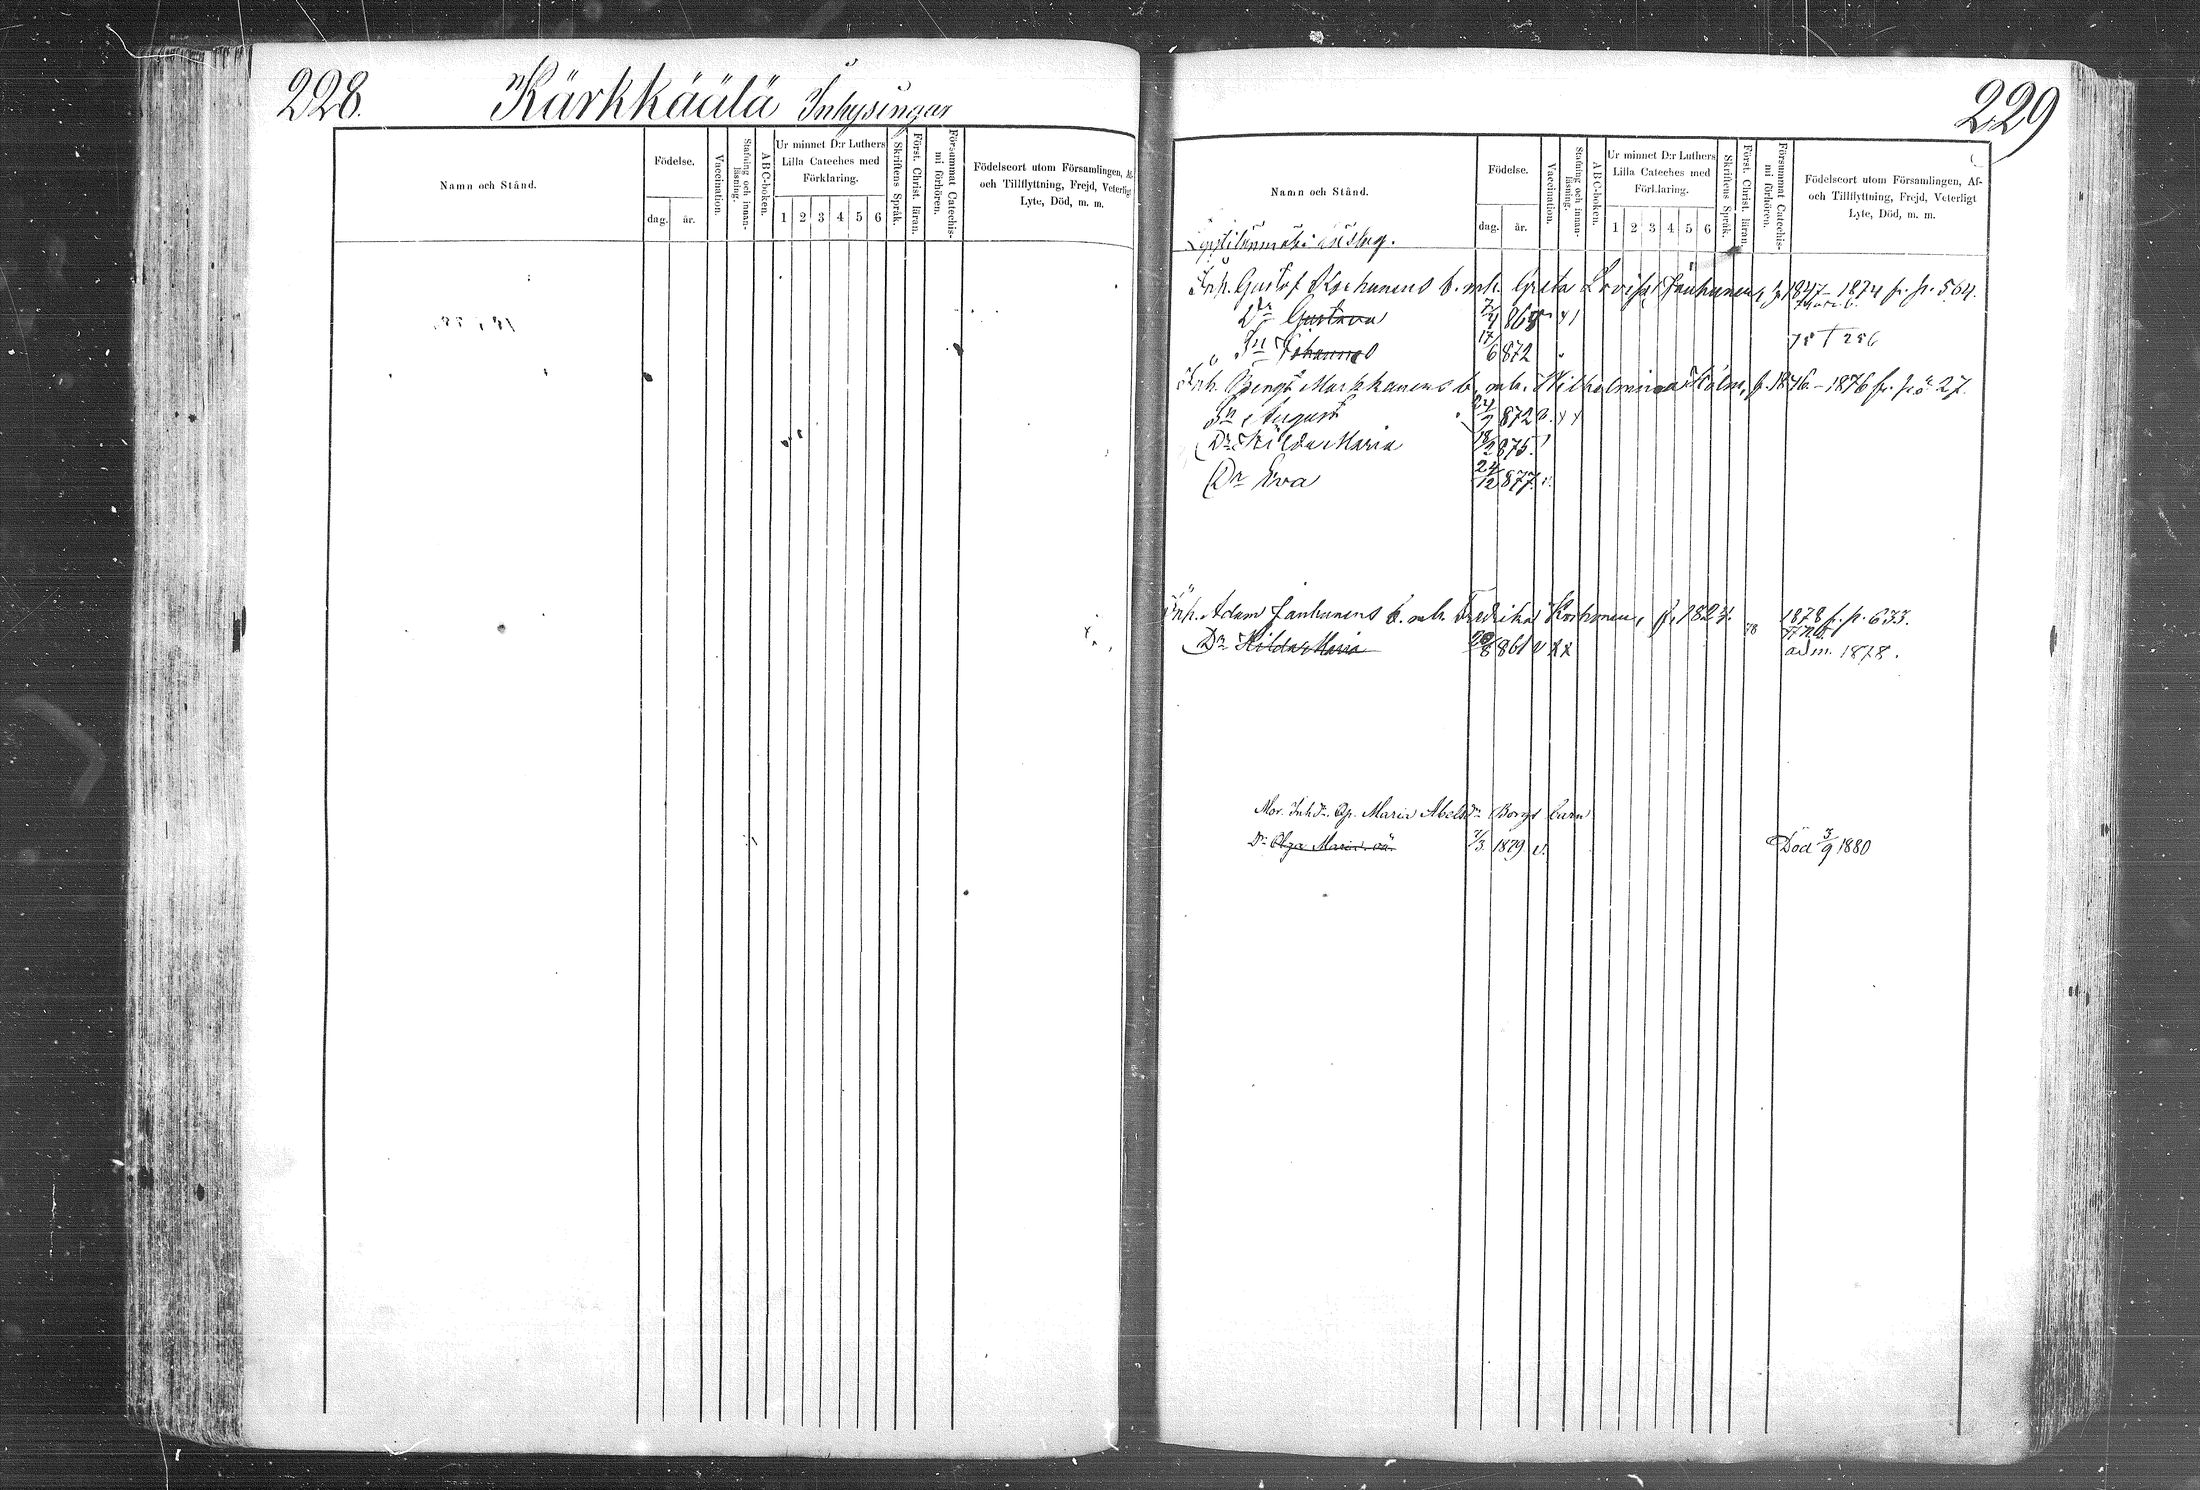 228.
Kärkkäälä Inhysingar
Namn och Stånd.
Födelse.
dag.
år.
Vaccination.
Stafning och innanläsning.
ABC-boken.
Ur minnet D:r Luthers
Lilla Cateches med
Förklaring.
1 2 3 4 5 6
Skriftens Språk.
Först. Christ. läran.
Försummat Catechismi förhören.
Födelseort utom Församlingen, Af-
och Tillflyttning, Frejd, Veterligt
Lyte, Död, m. m.
229
Namn och Stånd.
Födelse.
dag.
år.
Vaccination.
Stafning och innanläsning.
ABC-boken.
Ur minnet D:r Luthers
Lilla Cateches med
Förklaring.
1 2 3 4 5 6
Skriftens Språk.
Först. Christ. läran.
Försummat Catechismi förhören.
Födelseort utom Församlingen, Af-
och Tillflyttning, Frejd, Veterligt
Lyte, Död, m. m.
Inh. Gustaf Korhonens b. mh. Greta Lovisa Janhunen 1847 - 1874 fr. p. 564.
Dr Gustava
Sn Johannes 17/6 872
Inh. Bengt Markkanens b. mh. Wilhelmina Holm, f. 1846. - 1876 fr. p. 27.
Sn August 872
Dr Hilda Maria 875.
Dr Eva 24/12 877. v.
Inh. Adam Janhunens b. mh. Fredrika Korhonen, f. 1824. 78 1878 f. p. 633.
Dr Hilda Maria 861 v x x adm. 1878.
Mor. Inh. Dr. Maria Abelsdr Borgs barn
Dr Olga Maria oä. 1/3 1879 v. Död 3/9 1880